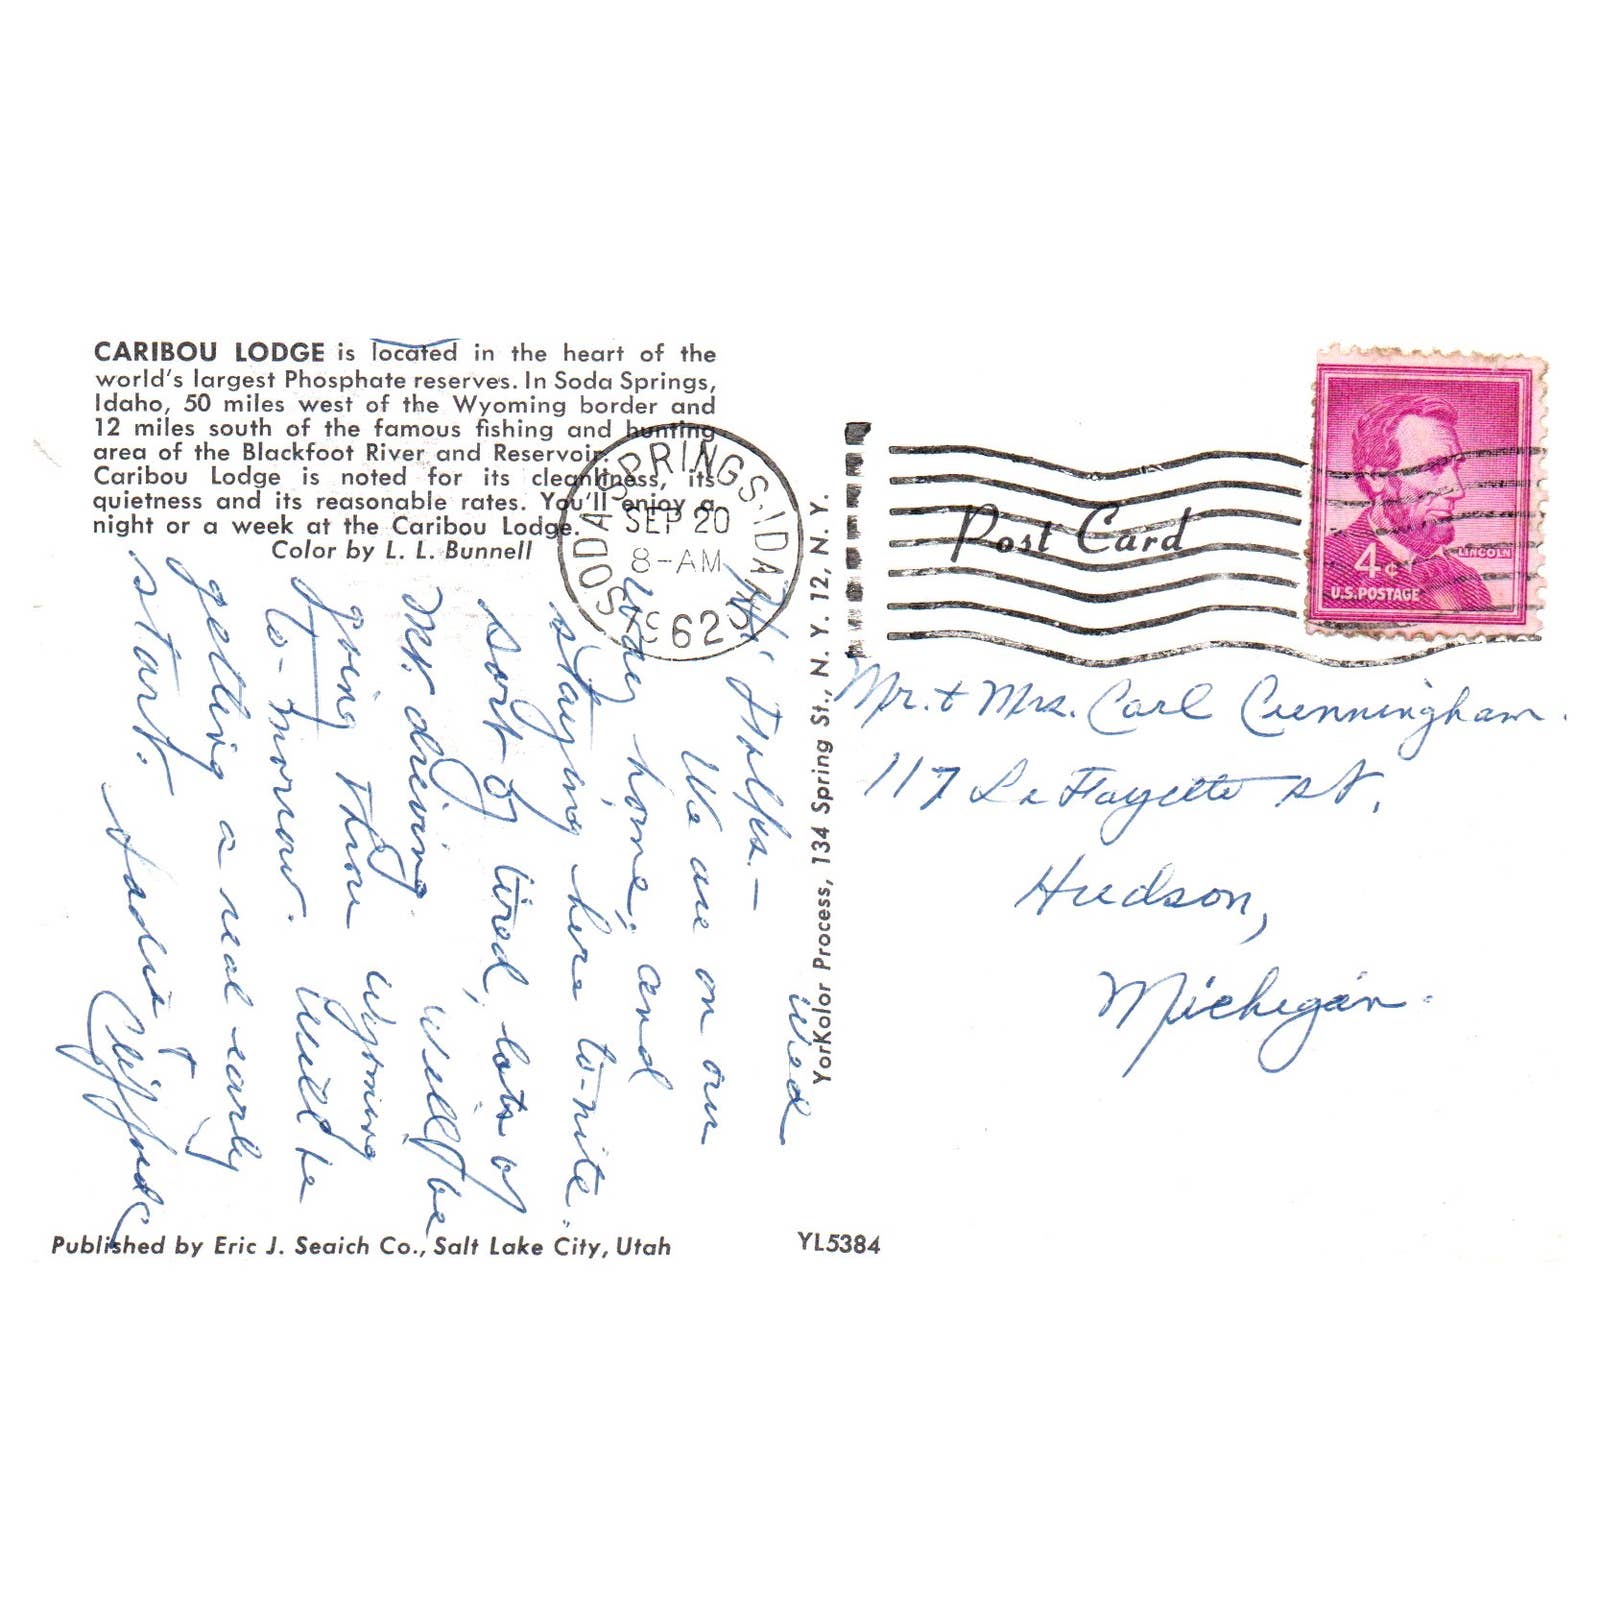 CARIBOU LODGE is located in the heart of the
world's largest Phosphate reserves. In Soda Springs,
Idaho, 50 miles west of the Wyoming border and
12 miles south of the famous fishing and hunting
area of the Blackfoot River and Reservoir.
Caribou Lodge is noted for its cleanliness, its
quietness and its reasonable rates. You'll enjoy a
night or a week at the Caribou Lodge.
Color by L. L. Bunnell
SODA SPRINGS, IDAHO
SEP 20
8-AM
1962
Wed
Hi Folks.—
We are on our
way home, and
staying here to-nite.
Sort of tired, lots of
driving. Will be
going thru Wyoming
to-morrow. Will be
getting a real early
start.
Sadie +
Clifford
Published by Eric J. Seaich Co., Salt Lake City, Utah
YorKolor Process, 134 Spring St., N. Y. 12, N. Y.
YL5384
Post Card
LINCOLN
4¢
U.S. POSTAGE
Mr. & Mrs. Carl Cunningham.
117 LaFayette St.
Hudson,
Michigan.